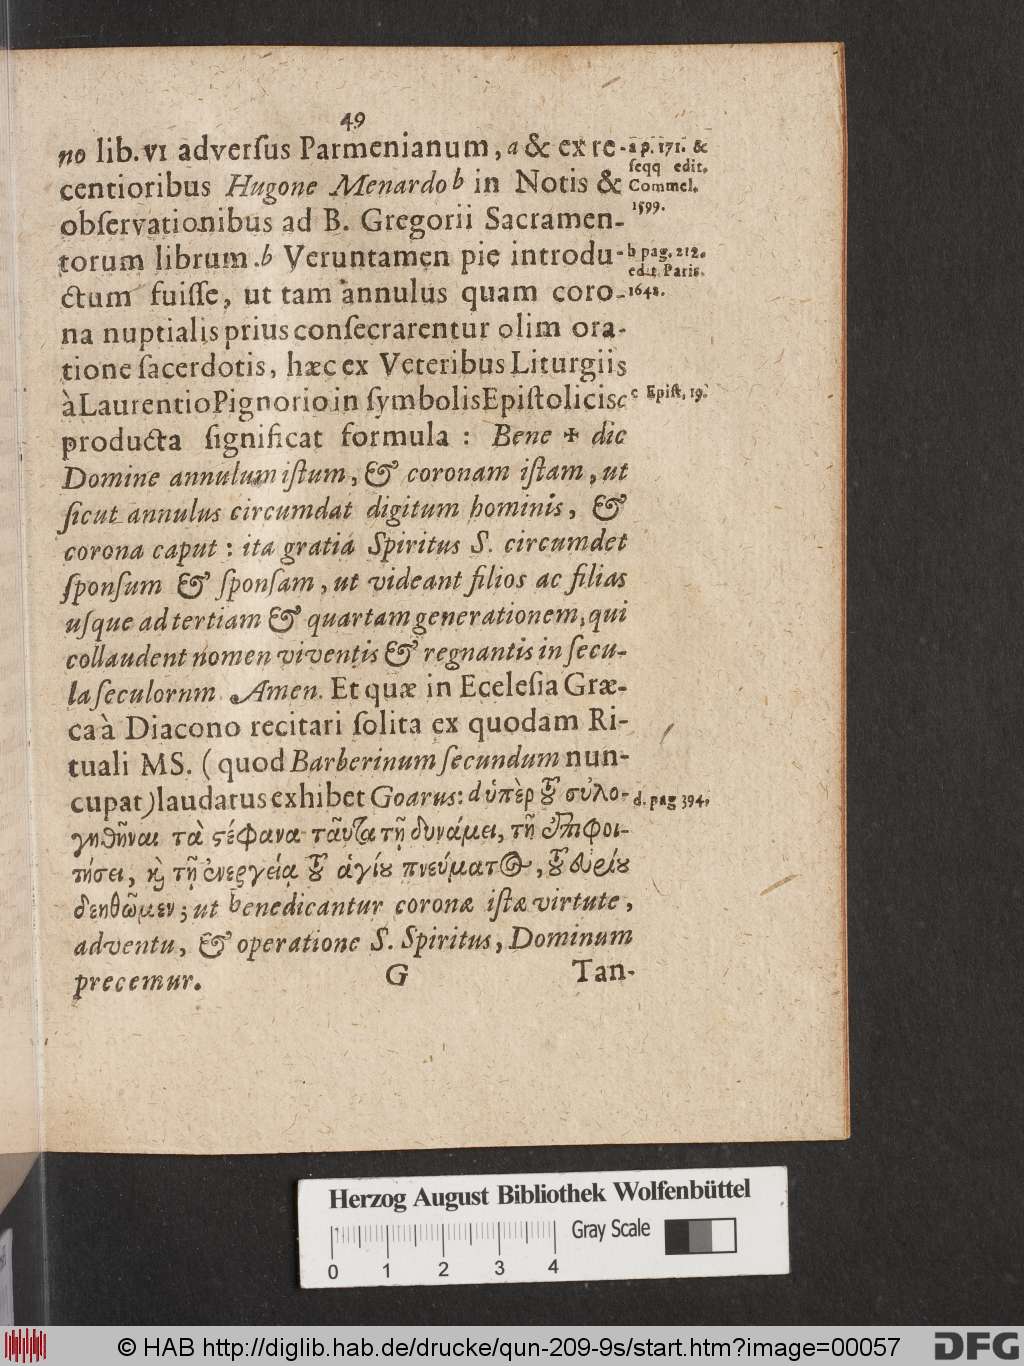 49
no lib. VI adverſus Parmenianum, a & ex re-
centioribus Hugone Menardo b in Notis &
obſervationibus ad B. Gregorii Sacramen-
torum librum. b Veruntamen pie introdu-
ctum fuiſſe, ut tam annulus quam coro-
na nuptialis prius conſecrarentur olim ora-
tione ſacerdotis, hæc ex Veteribus Liturgiis
à Laurentio Pignorio in ſymbolis Epiſtolicis c
producta ſignificat formula : Bene ✠ dic
Domine annulum iſtum, & coronam iſtam, ut
ſicut annulus circumdat digitum hominis, &
corona caput : ita gratia Spiritus S. circumdet
ſponſum & ſponſam, ut videant filios ac filias
uſque ad tertiam & quartam generationem, qui
collaudent nomen viventis & regnantis in ſecu-
la ſeculornm Amen. Et quæ in Eceleſia Græ-
ca à Diacono recitari ſolita ex quodam Ri-
tuali MS. ( quod Barberinum ſecundum nun-
cupat) laudatus exhibet Goarus: d ὑπὲρ τοῦ συλο-
γηθῆναι τὰ στέφανα ταῦτα τῇ δυνάμει, τῇ ἐπιφοι-
τήσει, καὶ τῇ ἐνεργείᾳ τοῦ ἁγίου πνεύματος, τοῦ κυρίου
δεηθῶμεν; ut benedicantur coronæ iſtæ virtute,
adventu, & operatione S. Spiritus, Dominum
precemur.
G Tan-
a p. 171. &
ſeqq edit.
Commel.
1599.
b pag. 212.
edit. Paris.
1642.
c Epiſt, 19.
d. pag 394,
Herzog August Bibliothek Wolfenbüttel
Gray Scale
0 1 2 3 4
© HAB http://diglib.hab.de/drucke/qun-209-9s/start.htm?image=00057
DFG